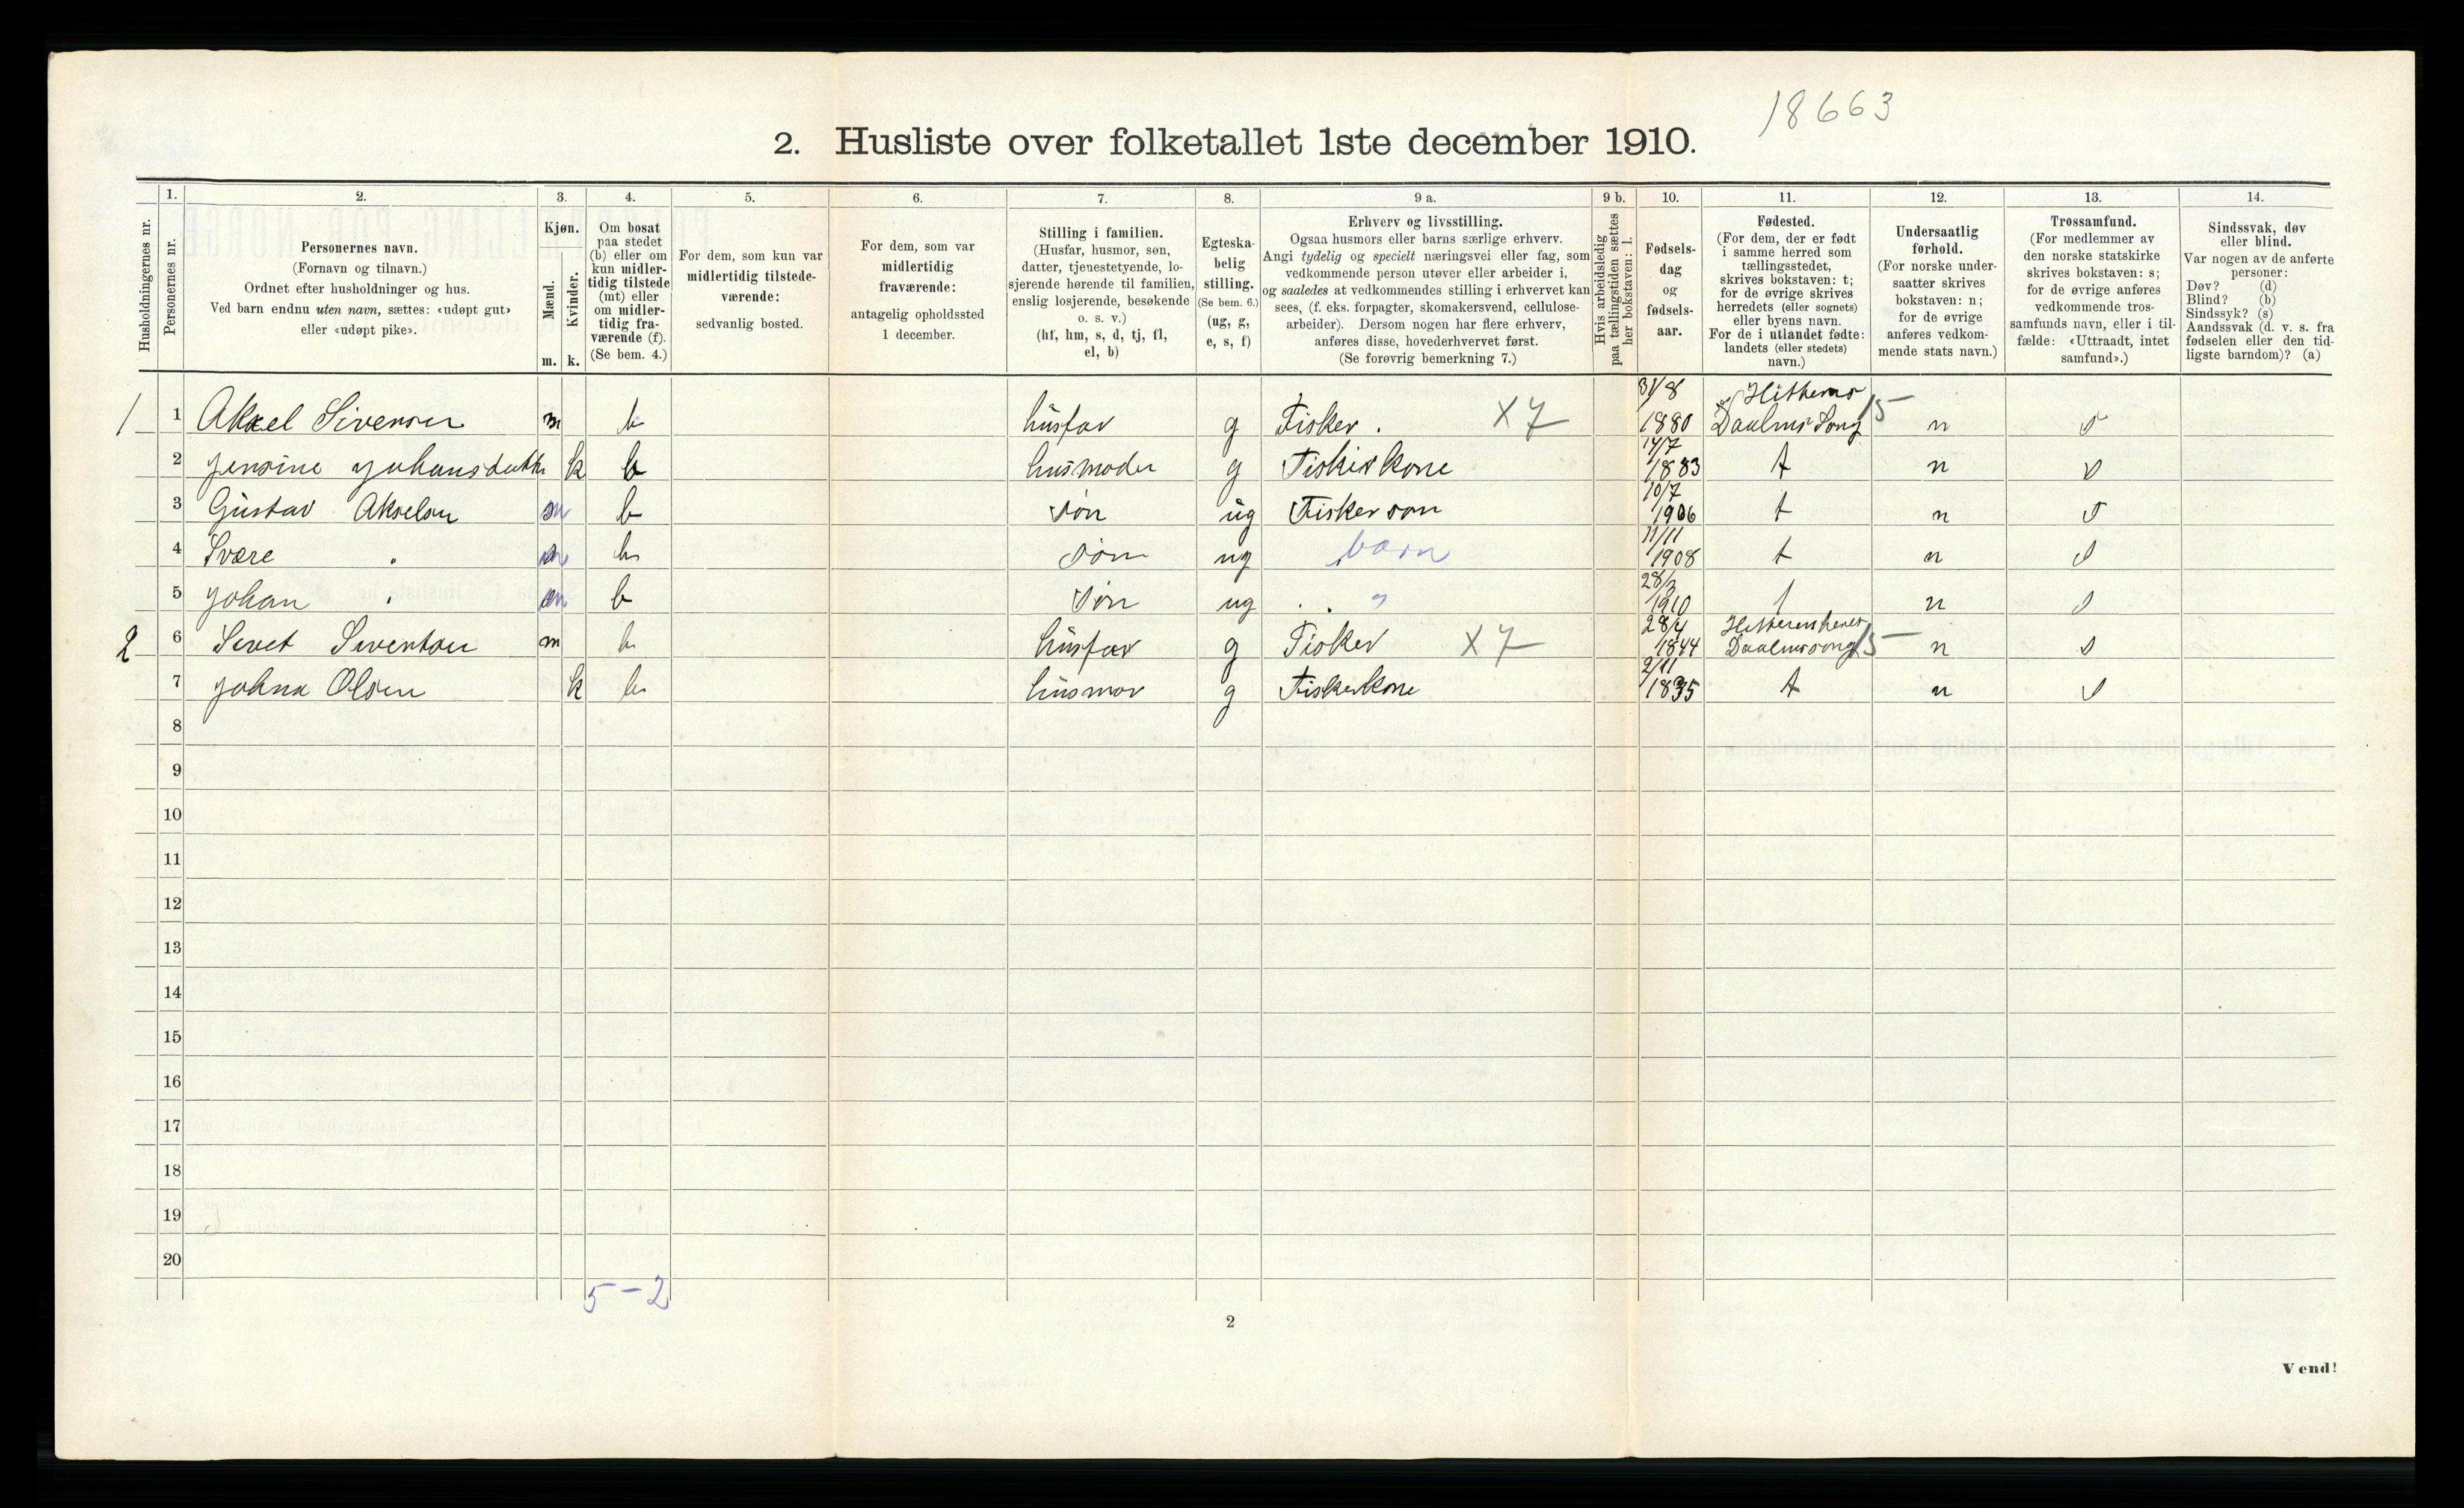 18663
2. Husliste over folketallet 1ste december 1910.
Husholdningernes nr.
1.
Personernes nr.
2.
Personernes navn.
(Fornavn og tilnavn.)
Ordnet efter husholdninger og hus.
Ved barn endnu uten navn, sættes: «udøpt gut»
eller «udøpt pike».
3.
Kjøn.
Mænd.
Kvinder.
m. k.
4.
Om bosat
paa stedet
(b) eller om
kun midler-
tidig tilstede
(mt) eller
om midler-
tidig fra-
værende (f).
(Se bem. 4.)
5.
For dem, som kun var
midlertidig tilstede-
værende:
sedvanlig bosted.
6.
For dem, som var
midlertidig
fraværende:
antagelig opholdssted
1 december.
7.
Stilling i familien.
(Husfar, husmor, søn,
datter, tjenestetyende, lo-
sjerende hørende til familien,
enslig losjerende, besøkende
o. s. v.)
(hf, hm, s, d, tj, fl,
el, b)
8.
Egteska-
belig
stilling.
(Se bem. 6.)
(ug, g,
e, s, f)
9 a.
Erhverv og livsstilling.
Ogsaa husmors eller barns særlige erhverv.
Angi tydelig og specielt næringsvei eller fag, som
vedkommende person utøver eller arbeider i,
og saaledes at vedkommendes stilling i erhvervet kan
sees, (f. eks. forpagter, skomakersvend, cellulose-
arbeider). Dersom nogen har flere erhverv,
anføres disse, hovederhvervet først.
(Se forøvrig bemerkning 7.)
9 b.
Hvis arbeidsledig
paa tællingstiden sættes
her bokstaven: l.
10.
Fødsels-
dag
og
fødsels-
aar.
11.
Fødested.
(For dem, der er født
i samme herred som
tællingsstedet,
skrives bokstaven: t;
for de øvrige skrives
herredets (eller sognets)
eller byens navn.
For de i utlandet fødte:
landets (eller stedets)
navn.)
12.
Undersaatlig
forhold.
(For norske under-
saatter skrives
bokstaven: n;
for de øvrige
anføres vedkom-
mende stats navn.)
13.
Trossamfund.
(For medlemmer av
den norske statskirke
skrives bokstaven: s;
for de øvrige anføres
vedkommende tros-
samfunds navn, eller i til-
fælde: «Uttraadt, intet
samfund».)
14.
Sindssvak, døv
eller blind.
Var nogen av de anførte
personer:
Døv? (d)
Blind? (b)
Sindssyk? (s)
Aandssvak (d. v. s. fra
fødselen eller den tid-
ligste barndom)? (a)
1 1 Aksel Sivensen m b husfar g Fisker. X7 31/8 1880 15 n s
2 Jensine Johansdatte k b husmoder g Fiskerkone 14/7 1883 t n s
3 Gustav Akselsen m b søn ug Fiskersøn 10/7 1906 t n s
4 Svære " m b søn ug barn 11/11 1908 t n s
5 Johan " m b søn ug " 28/3 1910 t n s
2 6 Sivert Siventsen m b husfar g Fisker X7 28/4 1844 15 n s
7 Johna Olsen k b husmor g Fiskerkone 2/11 1835 t n s
8
9
10
11
12
13
14
15
16
17
18
19
20
5-2
2
Vend!